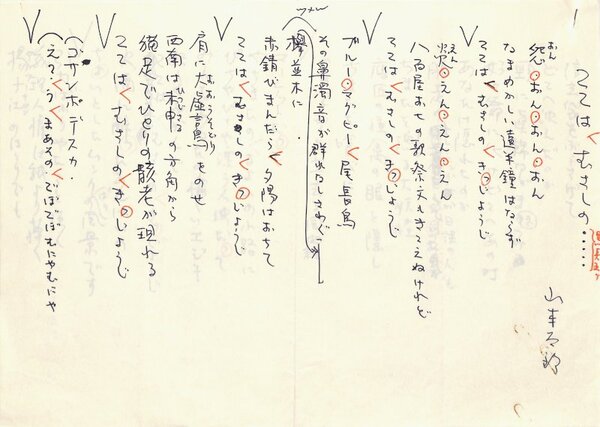 1
ここは<むさしの・・・・・
山本太郎
怨・おん・おん・おん
なまめかしい遠半鐘はならず
ここは<むさしの<きっじょうじ
炎・えん・えん・えん
八百屋お七の歌祭文もきこえぬけれど
ここは<むさしの<きっじょうじ
ブルー・マグピー<尾長鳥
その鼻濁音が群れなしさわぐ
欅並木に
赤錆びまんだら<夕陽はおちて
ここは<むさしの<きっじょうじ
肩に大嘘鳥をのせ
西南は未申の方角から
猫足でひとりの骸老が現れる
ここは<むさしの<きっじょうじ
(ゴサンポデスカ・
(えゝ<う<まあその・でぼでぼむにゃむにゃ